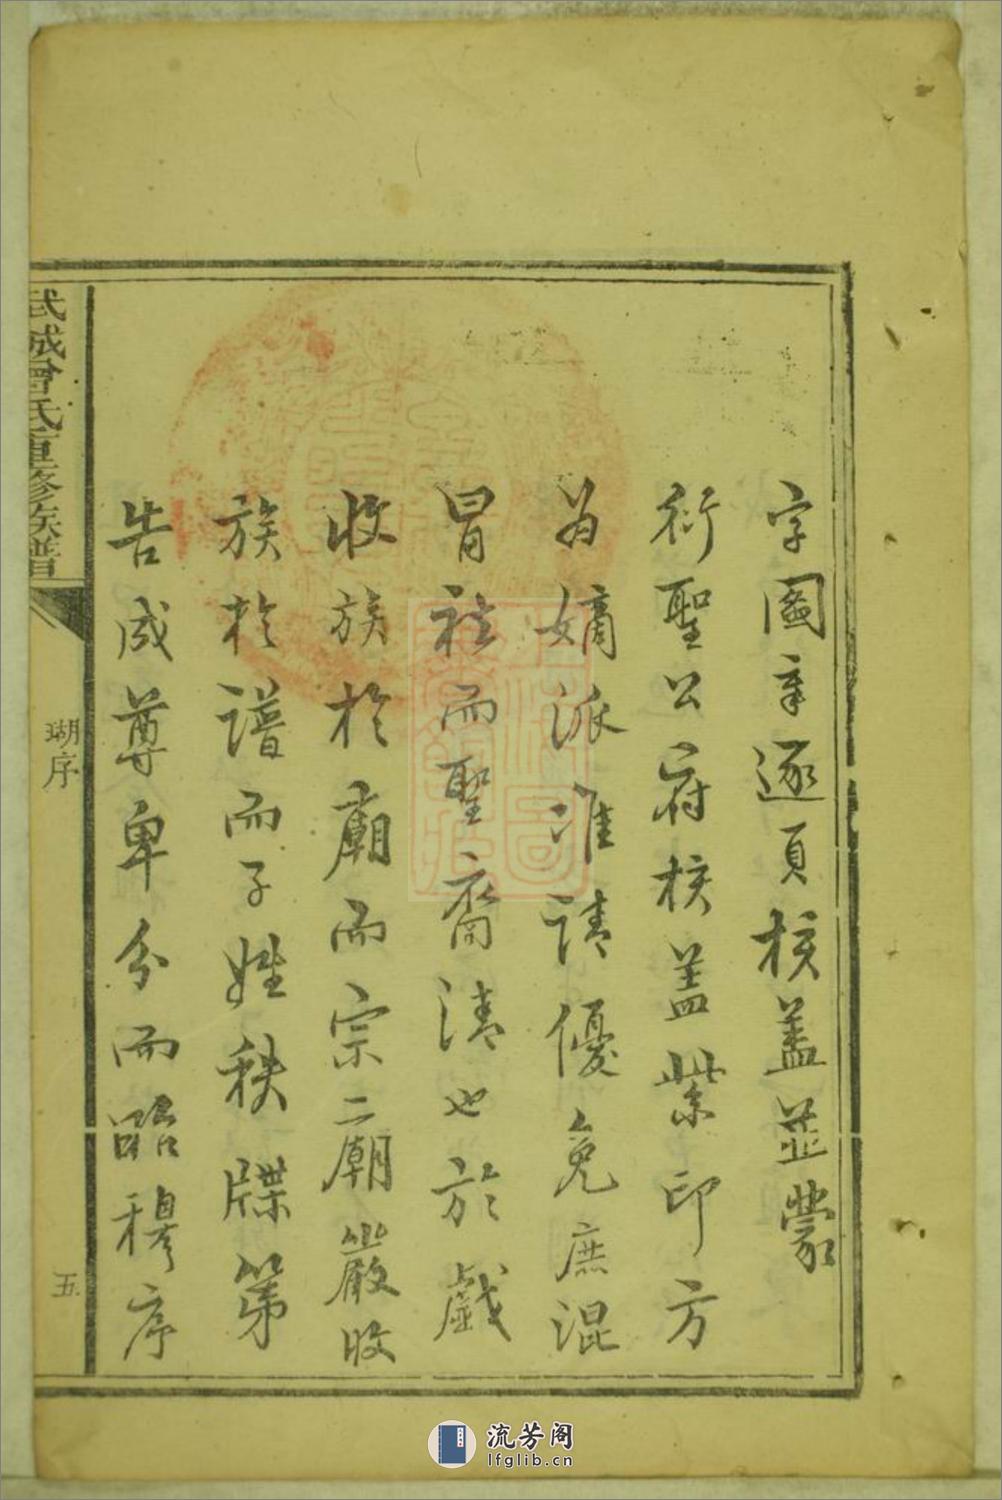 字圖章逐頁核蓋並蒙
衍聖公府核蓋紫印方
为嫡派准請優免庶混
冒祛而聖裔清也於戲
收族於廟而宗二廟嚴收
族於譜而子姓秩牒第
告成尊卑分而昭穆序
武城曾氏重修族譜
瑚序
五
流芳阁
lfglib.cn